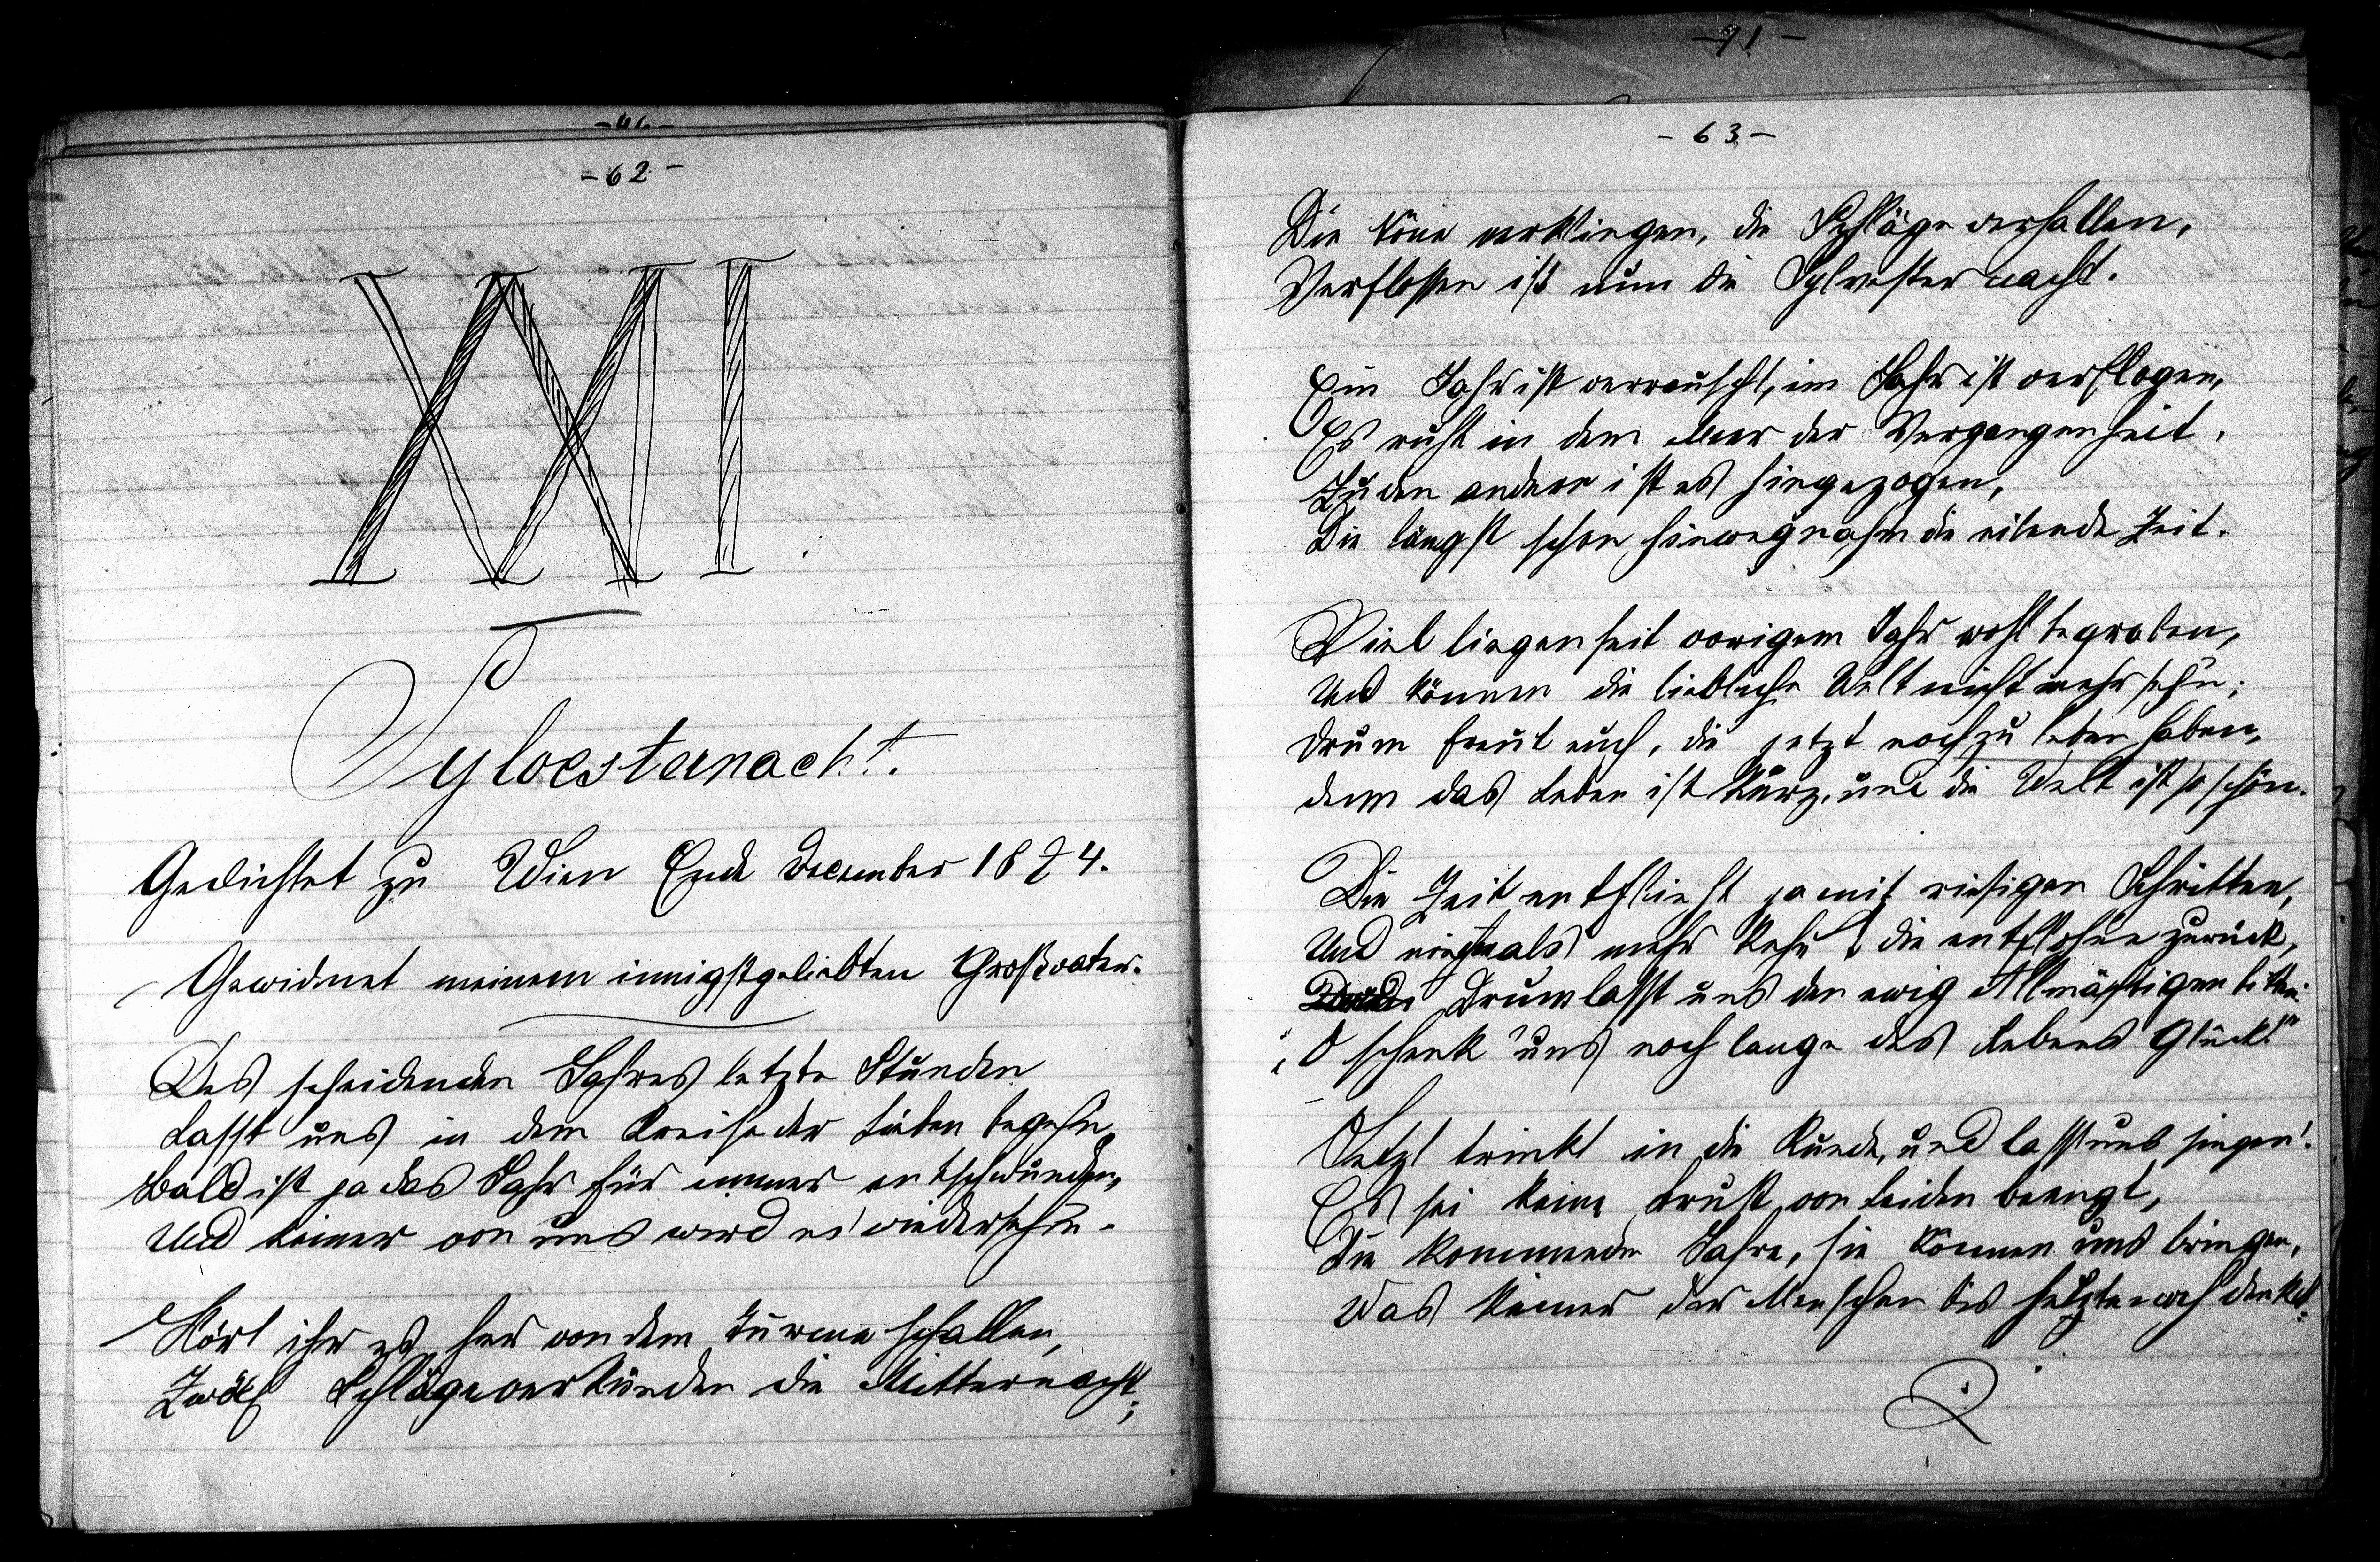 -46-
-62-
XXI.
Sylvesternacht.
Gedichtet zu Wien Ende December 1874.
Gewidmet meinem innigstgeliebten Großvater.
Des scheidenden Jahres letzte Stunden
Lasst uns in dem Kreise der Lieben begehn,
Bald ist ja das Jahr für immer entschwunden,
Und keiner von uns wird es wiedersehn.
Hört ihr es her von dem Turme schallen,
Zwölf Schläge verkünden die Mitternacht;
-91-
-63-
Die Töne verklingen, die Schläge verhallen,
Verflossen ist nun die Sylvesternacht.
Ein Jahr ist verrauscht, ein Jahr ist verflogen,
Es ruht in dem Meer der Vergangenheit.
Zu den andern ist es hingezogen,
Die längst schon hinwegnahm die eilende Zeit.
Viel liegen seit vorigem Jahr wohl begraben,
Und können die liebliche Welt nicht mehr sehn;
Drum freut euch, die jetzt noch zu leben haben,
denn das Leben ist kurz, und die Welt ist so schön.
Die Zeit entflieht ja mit riesigen Schritten,
Und niemals mehr kehrt die entflohne zurück,
Drum lasst uns den ewig Allmächtigen bitten:
„O schenk' uns noch lange des Lebens Glück!"
Jetzt trinkt in die Runde, und lasst uns singen!
Es sei keine Brust von Leiden beengt,
Die kommenden Jahre, sie können uns bringen,
Was keiner der Menschen bis jetzt noch denkt.